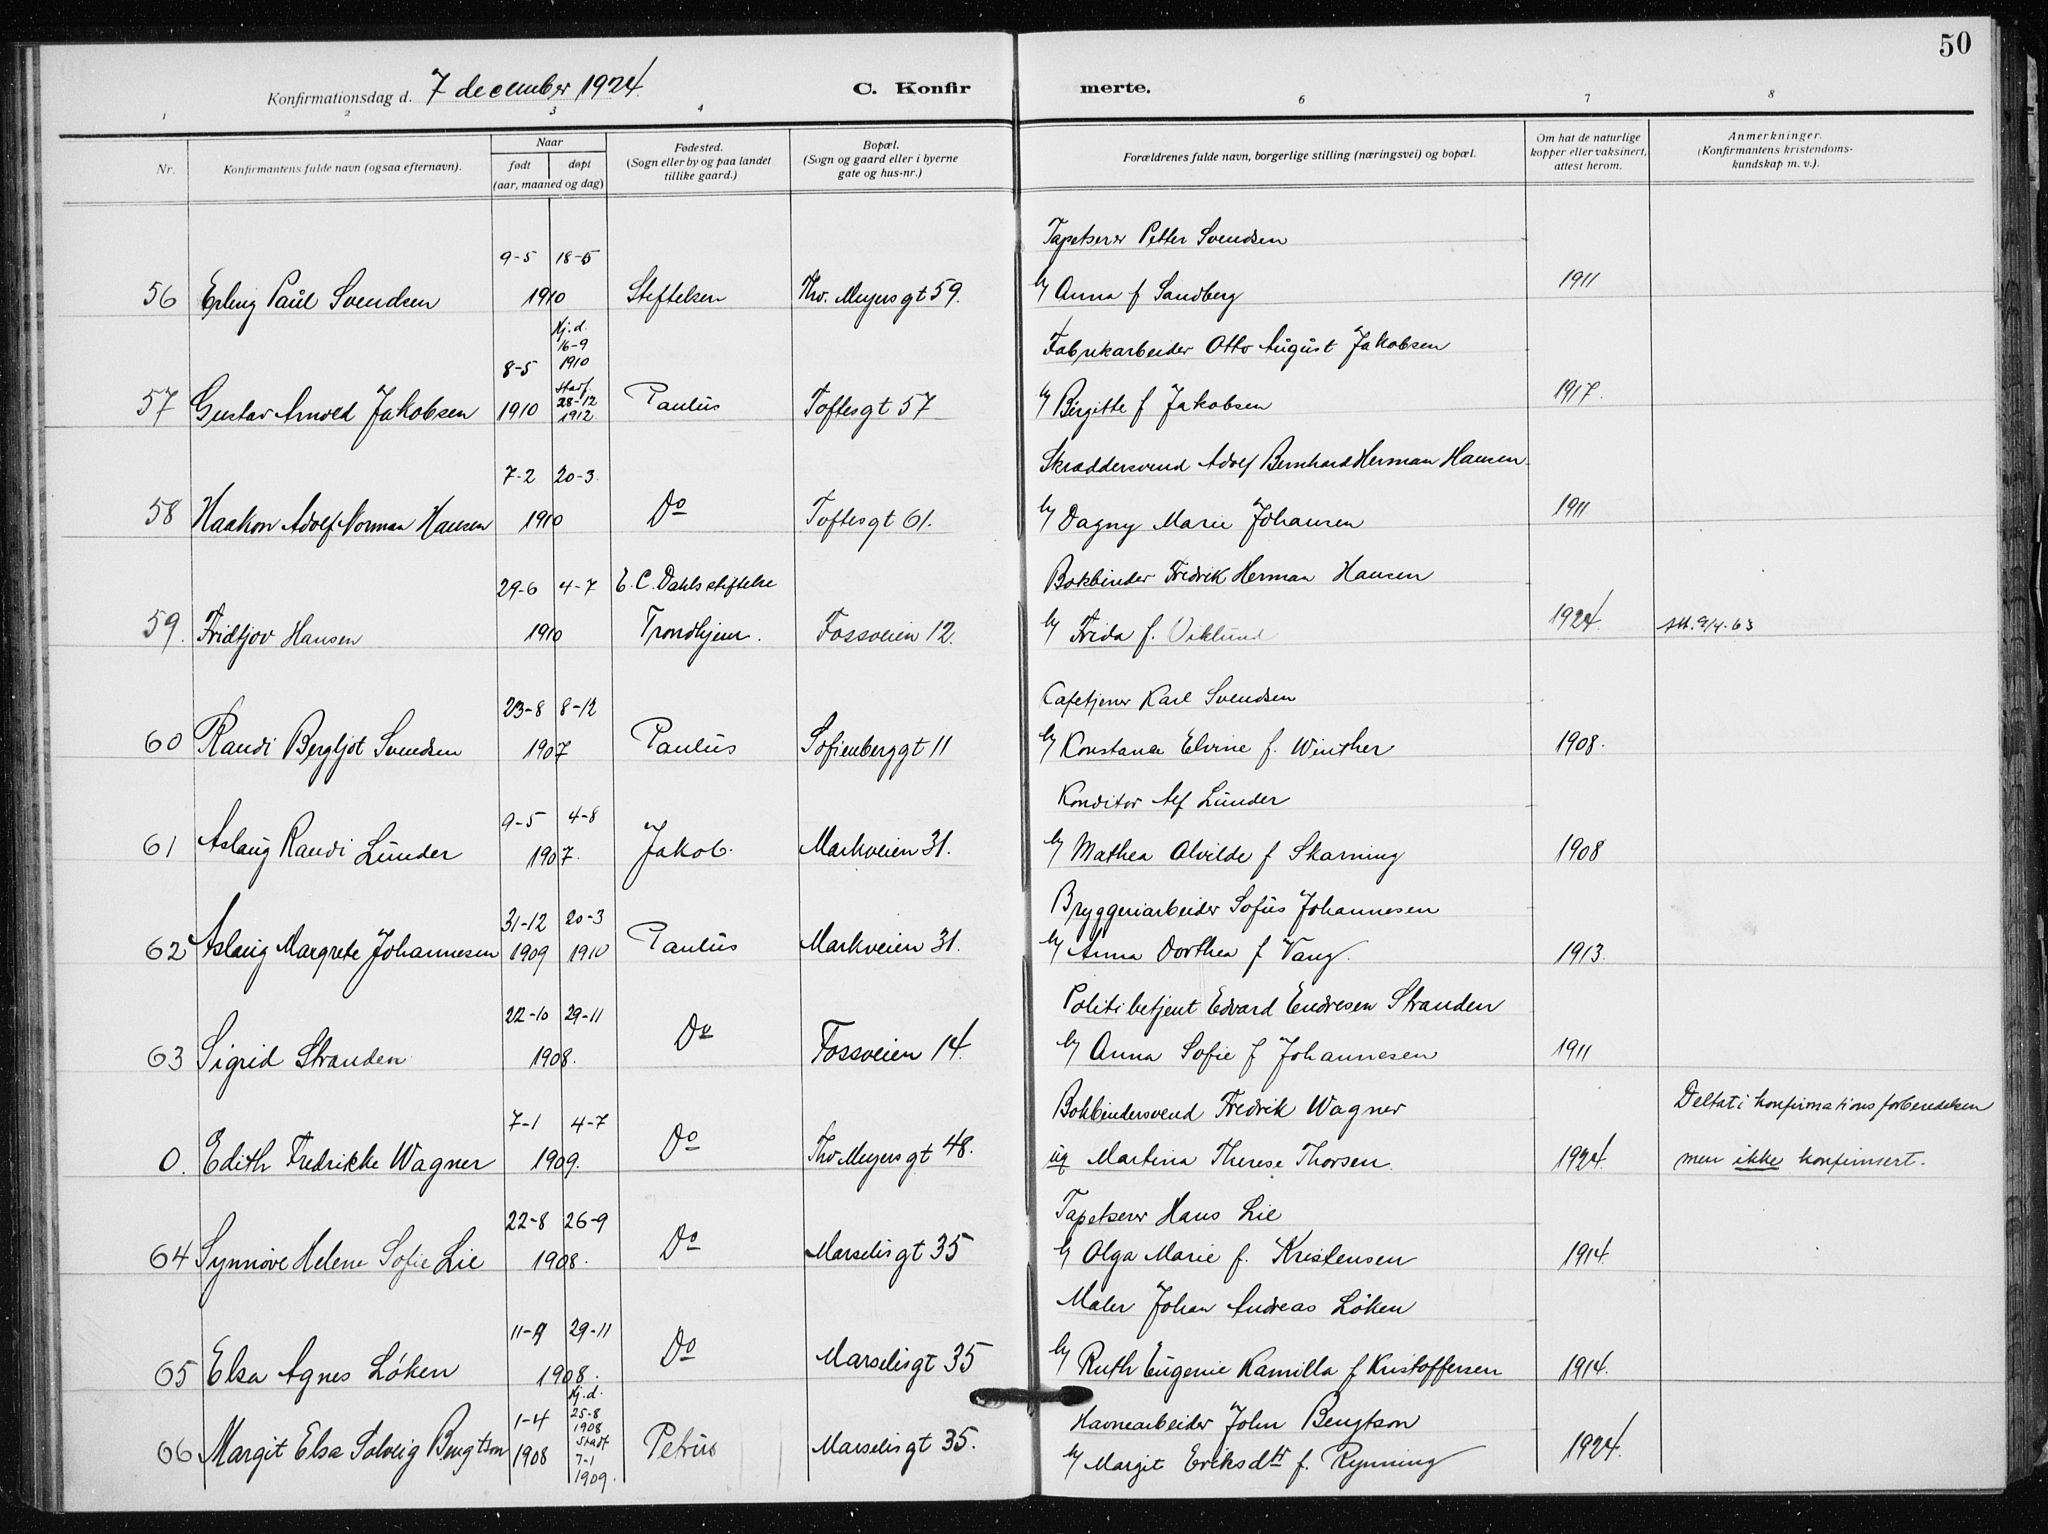 50
Konfirmationsdag d. 7 december 1924.
C. Konfirmerte.
1 2 3 4 6 7 8
Nr.
Konfirmantens fulde navn (ogsaa efternavn).
Naar
født døpt
(aar, maaned og dag)
Fødested.
(Sogn eller by og paa landet
tillike gaard.)
Bopæl.
(Sogn og gaard eller i byerne
gate og hus-nr.)
Forældrenes fulde navn, borgerlige stilling (næringsvei) og bopæl.
Om hat de naturlige
kopper eller vaksinert,
attest herom.
Anmerkninger.
(Konfirmantens kristendoms-
kundskap m. v.).
9-5 18-5 Tapetserer Petter Svendsen
56 Erling Paul Svendsen 1910 Stiftelsen Thv. Meyersgt 59. & Anna f Sandberg 1911
8-5 Hj.d. 16-9 1910 Fabrikarbeider Otto August Jakobsen
57 Gustav Arnold Jakobsen 1910 Stadf. 28-12 1912 Paulus Toftesgt 57 & Birgitte f Jakobsen 1917.
7-2 20-3. Skræddersvend Adolf Bernhard Herman Hansen
58 Haakon Adolf Norman Hansen 1910 Do Toftesgt 61. & Dagny Marie Johansen 1911
29-6 4-7 E. C. Dahls stiftelse Bokbinder Fredrik Herman Hansen
59. Fridtjov Hansen 1910 Trondhjem. Fossveien 12. & Frida f. Viklund 1924. Att. 9/4-63
23-8 8-12 Cafetjener Karl Svendsen
60 Randi Bergljot Svendsen 1907 Paulus Sofienberggt 11 & Konstance Elvine f. Winther 1908.
9-5 4-8 Konditor Alf Lunder
61 Aslaug Randi Lunder 1907. Jakob. Markveien 31. & Mathea Alvilde f Skarning 1908
31-12 20-3 Bryggeriarbeider Sofus Johannesen
62 Aslaug Margrete Johannesen 1909 1910 Paulus Markveien 31. & Anna Dorthea f Vang. 1913.
22-10 29-11 Politibetjent Edvard Endresen Stranden
63 Sigrid Stranden 1908. Do Fossveien 14. & Anna Sofie f Johannesen 1911
7-1 4-7 Bokbindersvend Fredrik Wagner Deltat i konfirmationsforberedelsen
0. Edith Fredrikke Wagner 1909. Do Thv Meyersgt 48. ug Martina Therese Thorsen. 1924. men ikke konfirmert.
22-8 26-9 Tapetserer Hans Lie
64 Synnöve Helene Sofie Lie 1908. Do Marselisgt 35 & Olga Marie f. Kristensen 1914.
11-9 29-11 Maler Johan Andreas Løken
65 Elsa Agnes Løken 1908. Do Marselisgt 35 & Ruth Eugenie Kamilla f Kristoffersen 1914.
1-4 Hj.d. 25-8 1908 Havnearbeider John Bengtson
66 Margit Elsa Solveig Bengtson 1908 Stadf 7-1 1909. Petrus Marselisgt 35. & Margit Eriksdtr f. Rynning 1924.